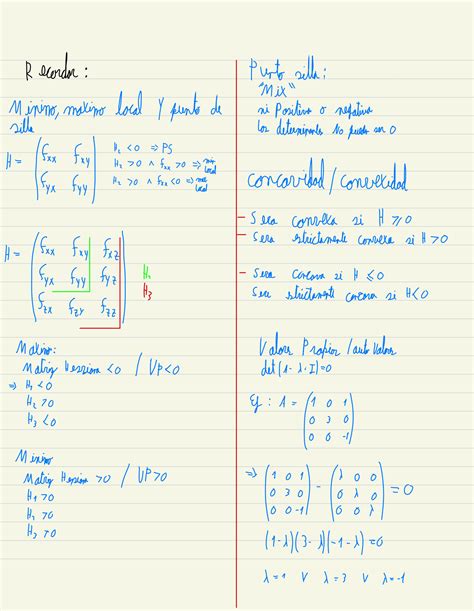 Recordar:
Minimo, maximo local y punto de
silla
H = (fxx fxy
fyx fyy)
H₂ < 0 ⇒ PS
H₂ > 0 ∧ fxx > 0 ⇒ min local
H₂ > 0 ∧ fxx < 0 ⇒ max local
H = (fxx fxy fxz
fyx fyy fyz
fzx fzy fzz)
H₂
H₃
Maximo:
Matriz Hessiana < 0 / VP < 0
⇒ H₁ < 0
H₂ > 0
H₃ < 0
Minimo
Matriz Hessiana > 0 / VP > 0
H₁ > 0
H₂ > 0
H₃ > 0
Punto silla:
"Mix"
ni Positiva o negativa
los determinante No puede ser 0
Concavidad / Convexidad
- Sera convexa si H ⩾ 0
- Sera strictamente convexa si H > 0
- Sera concava si H ⩽ 0
Sera strictamente concava si H < 0
Valores Propios / auto Valores
det(A - λ · I) = 0
Ej: A = (1 0 1
0 3 0
0 0 -1)
⇒ (1 0 1
0 3 0
0 0 -1) - (λ 0 0
0 λ 0
0 0 λ) = 0
(1-λ)(3-λ)(-1-λ) = 0
λ = 1 ∨ λ = 3 ∨ λ = -1